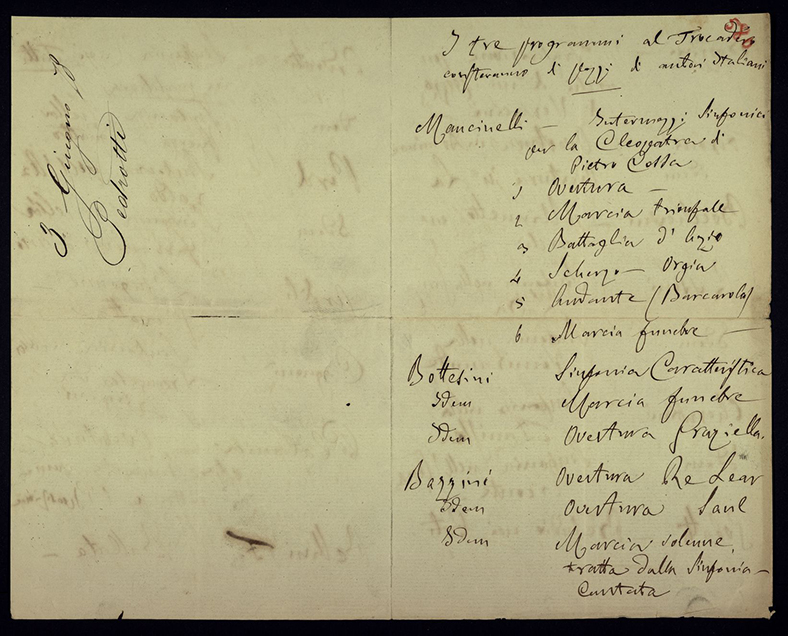 3 Giugno 78
Pedrotti
I tre programmi al Trocadero
consteranno di pezzi di autori Italiani
Mancinelli — Intermezzi Sinfonici
per la Cleopatra di
Pietro Cossa
1 Overtura —
2 Marcia trionfale
3 Battaglia d'Azio
4 Scherzo — Orgia
5 Andante (Barcarola)
6 Marcia funebre —
Bottesini Sinfonia Caratteristica
Idem Marcia funebre
Idem Overtura Graziella.
Bazzini Overtura Re Lear
Idem Overtura Saul
Idem Marcia solenne,
tratta dalla Sinfonia —
Cantata